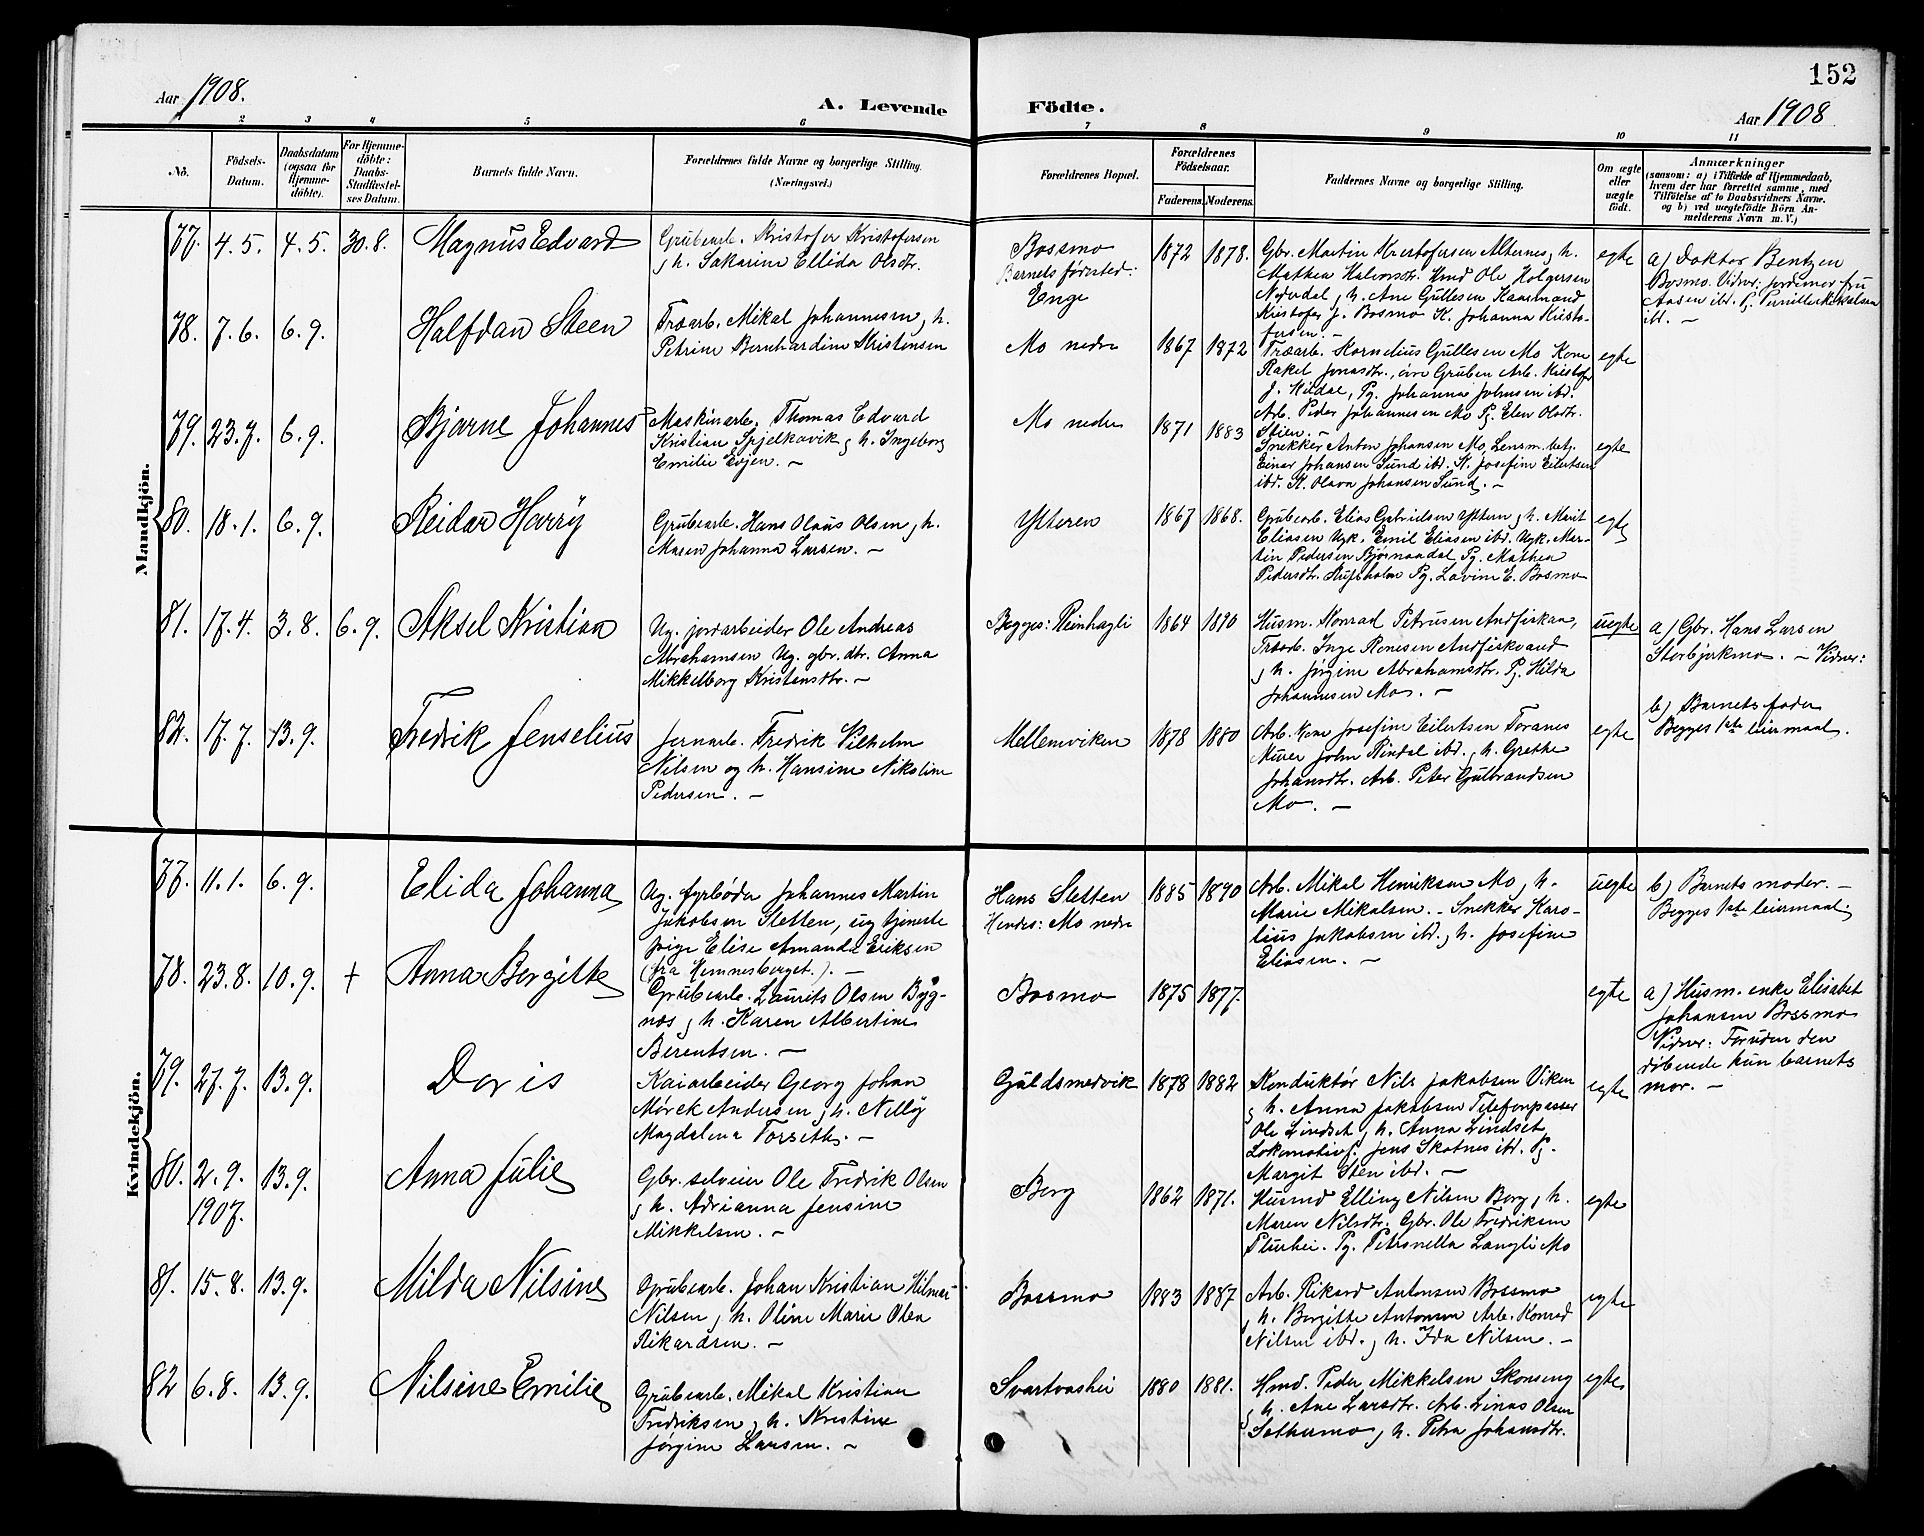 152
Aar 1908.
A. Levende Födte.
Aar 1908
2 3 4 5 6 7 8 9 10 11
No.
Födsels-Datum.
Daabsdatum (ogsaa for Hjemme-döbte).
For Hjemme-döbte: Daabs-Stadfæstel-ses Datum.
Barnets fulde Navn.
Forældrenes fulde Navne og borgerlige Stilling.
(Næringsvei.)
Forældrenes Bopæl.
Forældrenes Födselsaar.
Faderens. Moderens.
Faddernes Navne og borgerlige Stilling.
Om ægte eller uægte födt.
Anmærkninger
(saasom: a) i Tilfælde af Hjemmedaab, hvem der har forrettet samme, med Tilföielse af to Daabsvidners Navne. og b) ved uægtefödte Börn An-melderens Navn m. V.)
Mandkjön.
77. 4.5. 4.5. 30.8. Magnus Edvard
Grubearb. Kristofer Kristofersen
og h. Sakarine Ellida Olsdtr.
Bossmo
Barnets fødested:
Enge
1872 1878.
Gbr. Martin Kristofersen Alternes, h.
Mathea Halvorsdtr. Hmd Ole Holgersen
Nydvdal, h. Ane Gullesen Kaarmand
Kristofer J. Bosmo K. Johanna Kristo-
fersen. —
egte
a) Doktor Bentzen
Bosmo. Vidner: jordemor fru
Aasen ibd. Pg. Pernille
ibd. —
78. 7.6. 6.9. Halfdan Steen
Træarb. Mikal Johannesen, h.
Petrine Bernhardine Kristensen
Mo nedre
1867 1872
Træarb. Kornelius Gullesen Mo Kone
Rakel Jonasdtr., øvre Gruben Arb. Kristofer
J. Hildal, Pg. Johanna Johnsen ibd.
Arb. Peder Johannesen Mo Pg. Elen Olsdtr.
Stien. —
egte
79. 23.7. 6.9. Bjarne Johannes
Maskinarb. Thomas Edvard
Kristian Spjelkavik og h. Ingeborg
Emilie Evjen. —
Mo nedre
1871 1883
Snekker Anton Johansen Mo, Lensm. betj.
Einar Johansen Sund ibd. K. Josefine Eilertsen
ibd. K. Olava Johansen Sund. —
egte
80. 18.1. 6.9. Reidar Harry
Grubearb. Hans Olaus Olsen, h.
Maren Johanna Larsen. —
Ytteren
1867 1868.
Grubearb. Elias Gabrielsen Yttern, h. Marit
Eliasen Ugk. Emil Eliasen ibd. Ugk. Mar-
tin Pedersen Bjørnaadal Pg. Mathea
Pedersdtr. Hufsholm Pg. Lovine E. Bosmo
egte
81. 17.4. 3.8. 6.9. Aksel Kristian
Ug. jordarbeider Ole Andreas
Abrahamsen Ug. gbr. dtr. Anna
Mikkelborg Kristensdtr. —
Begges: Reinhagli
1864 1890
Husm. Konrad Petrusen Andfiskaa,
Træarb. Inge Rønesen Andfiskvand
og h. Jørgine Abrahamsdtr. Pg. Hilda
Johannesen Mo. —
uegte
a) Gbr. Hans Larsen
Storbjerkmo. — Vidner:
b) Barnets fader
Begges 1ste leiermaal.
82. 17.7. 13.9. Fredrik Jenselius
Jernarb. Fredrik Vilhelm
Nilsen og h. Hansine Nikoline
Pedersen. —
Mellemviken
1878 1880
Arb. kone Josefine Eilertsen Toranes
Murer John Rindal ibd. h. Grethe
Johansdtr. Arb. Peter Gulbrandsen
Mo. —
egte
Kvindekjön.
77. 11.1. 6.9. Elida Johanna
Ug. fyrbøder Johannes Martin
Jakobsen Sletten, ug tjeneste
pige Elise Amanda Eriksen
(fra Hemnesberget.). —
Hans Sletten
Hendes: Mo nedre
1885 1890
Arb. Mikal Henriksen Mo, h.
Marie Mikalsen. - Snekker Karo-
lius Jakobsen ibd., h. Josefine
Eliasen. —
uegte
b) Barnets moder. —
Begges 1ste leiermaal.
78. 23.8. 10.9. + Anna Bergitte
Grubearb. Laurits Olsen Byg-
næs, h. Karen Albertine
Berentsen. —
Bosmo
1875 1877.
egte
a) Husm. enke Elisabet
Johansen Bossmo
Vidner: Foruden den
døbende kun barnets
mor. —
79. 27.7. 13.9. Doris
Kaiarbeider Georg Johan
Mørck Andersen, h. Nelly
Magdalena Forseth. —
Guldsmedvik
1878 1882
Konduktør Nils Jakobsen Viken
og h. Anna Jakobsen Telefonpasser
Ole Lindset, h. Anna Lindset,
Lokomotivf. Jens Skotnes ibd. Pg.
Margit Sten ibd. —
egte
80. 2.9. 1907. 13.9. Anna Julie
Gbr. selveier Ole Fredrik Olsen
og h. Adrianna Jensine
Mikkelsen. —
Berg
1862 1871.
Husmd Elling Nilsen Berg, h.
Maren Nilsdtr. Gbr. Ole Fredriksen
Plurhei. Pg. Petronella Langli Mo
egte
81. 15.8. 13.9. Milda Nilsine
Grubearb. Johan Kristian Hilmar
Nilsen, h. Oline Marie Olea
Rikardsen. —
Bossmo
1883 1887
Arb. Rikard Antonsen Bossmo
og h. Bergitte Antonsen Arb. Konrad
Nilsen ibd., h. Ida Nilsen. —
egte
82 6.8. 13.9. Nilsine Emilie
Grubearb. Mikal Kristian
Fredriksen, h. Kristine
Jørgine Larsen. —
Svartvashei
1880 1881.
Hmd. Peder Mikkelsen Skonseng
og h. Ane Larsdtr. Arb. Linus Olsen
Sathermo, h. Petra Johansdtr.
egte